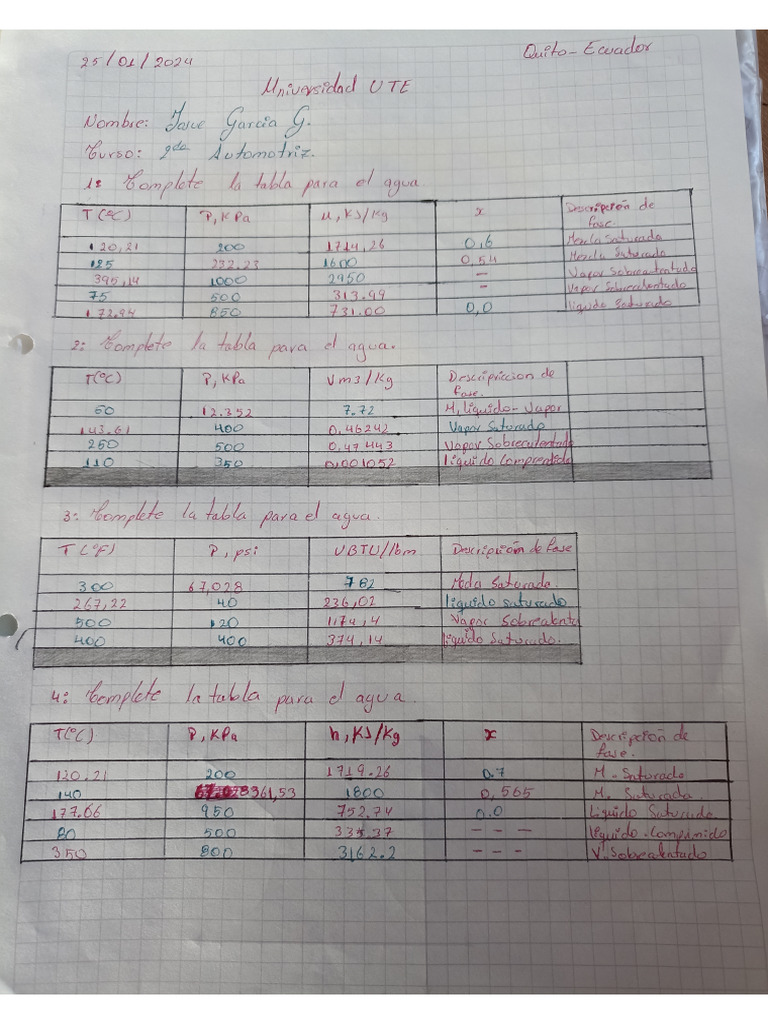 25/01/2024 Quito-Ecuador
Universidad UTE
Nombre: Josue Garcia G.
Curso: 2do Automotriz.
1: Complete la tabla para el agua.
T(°C) P, KPa u, KJ/Kg x Descripción de fase.
120,21 200 1714,26 0,6 Mezcla Saturada
125 232.23 1600 0,54 Mezcla Saturado
395,14 1000 2950 - Vapor Sobrecalentado
75 500 313.99 - Vapor Sobrecalentado
172.94 850 731.00 0,0 liquido Saturado
2: Complete la tabla para el agua.
T(°C) P, KPa V m3/Kg Descripriccion de fase.
50 12.352 7.72 M, liquido-Vapor
143.61 400 0,46242 Vapor Saturado
250 500 0,47443 Vapor Sobrecalentado
110 350 0,001052 liquido Comprendido
3: Complete la tabla para el agua.
T(°F) P, psi U BTU/lbm Descripción de fase
300 67,028 782 Mezcla Saturada.
267,22 40 236,02 liquido saturado
500 120 1174,4 Vapor Sobrecalenta
400 400 374,14 liquido Saturado.
4: Complete la tabla para el agua.
T(°C) P, KPa h, KJ/Kg x Descripción de fase.
120.21 200 1719.26 0.7 M-Saturado
140 361,53 1800 0,565 M. Saturada
177.66 950 752.74 0.0 Liquido Saturado
80 500 335.37 --- liquido-Comprimido
350 800 3162.2 --- V. Sobrecalentado